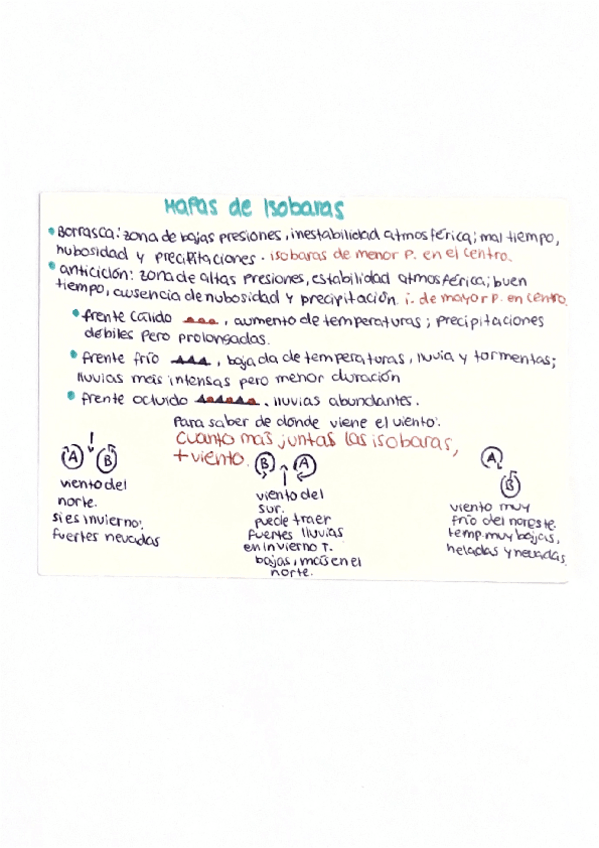 Mapas de Isobaras
• Borrasca: zona de bajas presiones, inestabilidad atmosférica; mal tiempo,
nubosidad y precipitaciones. isobaras de menor P. en el centro.
• anticiclón: zona de altas presiones, estabilidad atmosférica; buen
tiempo, ausencia de nubosidad y precipitación. i. de mayor P. en centro.
• frente cálido , aumento de temperaturas; precipitaciones
débiles pero prolongadas.
• frente frío , bajada de temperaturas, lluvia y tormentas;
lluvias más intensas pero menor duración
• frente ocluido , lluvias abundantes.
Para saber de dónde viene el viento:
cuanto más juntas las isobaras,
+ viento.
A B
viento del
norte.
si es invierno:
fuertes nevadas
B A
viento del
sur.
puede traer
fuertes lluvias
en invierno T.
bajas, más en el
norte.
A
B
viento muy
frío del noreste.
temp. muy bajas,
heladas y nevadas.